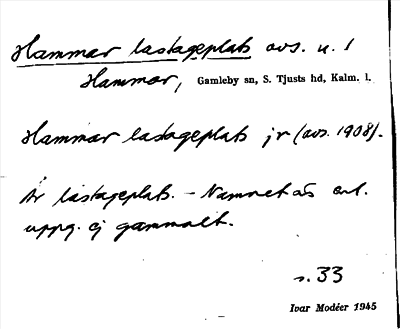 Hammar lastageplats avs. u. 1
Hammar, Gamleby sn, S. Tjusts hd, Kalm. l.
Hammar lastageplats jr (avs. 1908).
Är lastageplats. – Namnet är enl.
uppg. ej gammalt.
s. 33
Ivar Modéer 1945